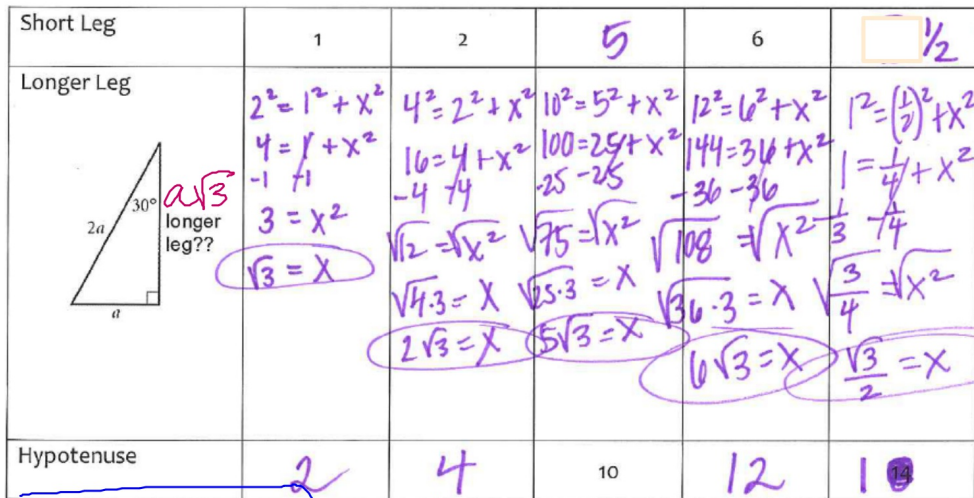 Short Leg 1 2 5 6 1/2
Longer Leg
2a 30° a√3
longer
leg??
a
2² = 1² + x²
4 = 1 + x²
-1 -1
3 = x²
√3 = x
4² = 2² + x²
16 = 4 + x²
-4 -4
√12 = √x²
√4·3 = x
2√3 = x
10² = 5² + x²
100 = 25 + x²
-25 -25
√75 = √x²
√25·3 = x
5√3 = x
12² = 6² + x²
144 = 36 + x²
-36 -36
√108 = √x²
√36·3 = x
6√3 = x
1² = (1/2)² + x²
1 = 1/4 + x²
√3/4 = √x²
√3/2 = x
Hypotenuse 2 4 10 12 1 14